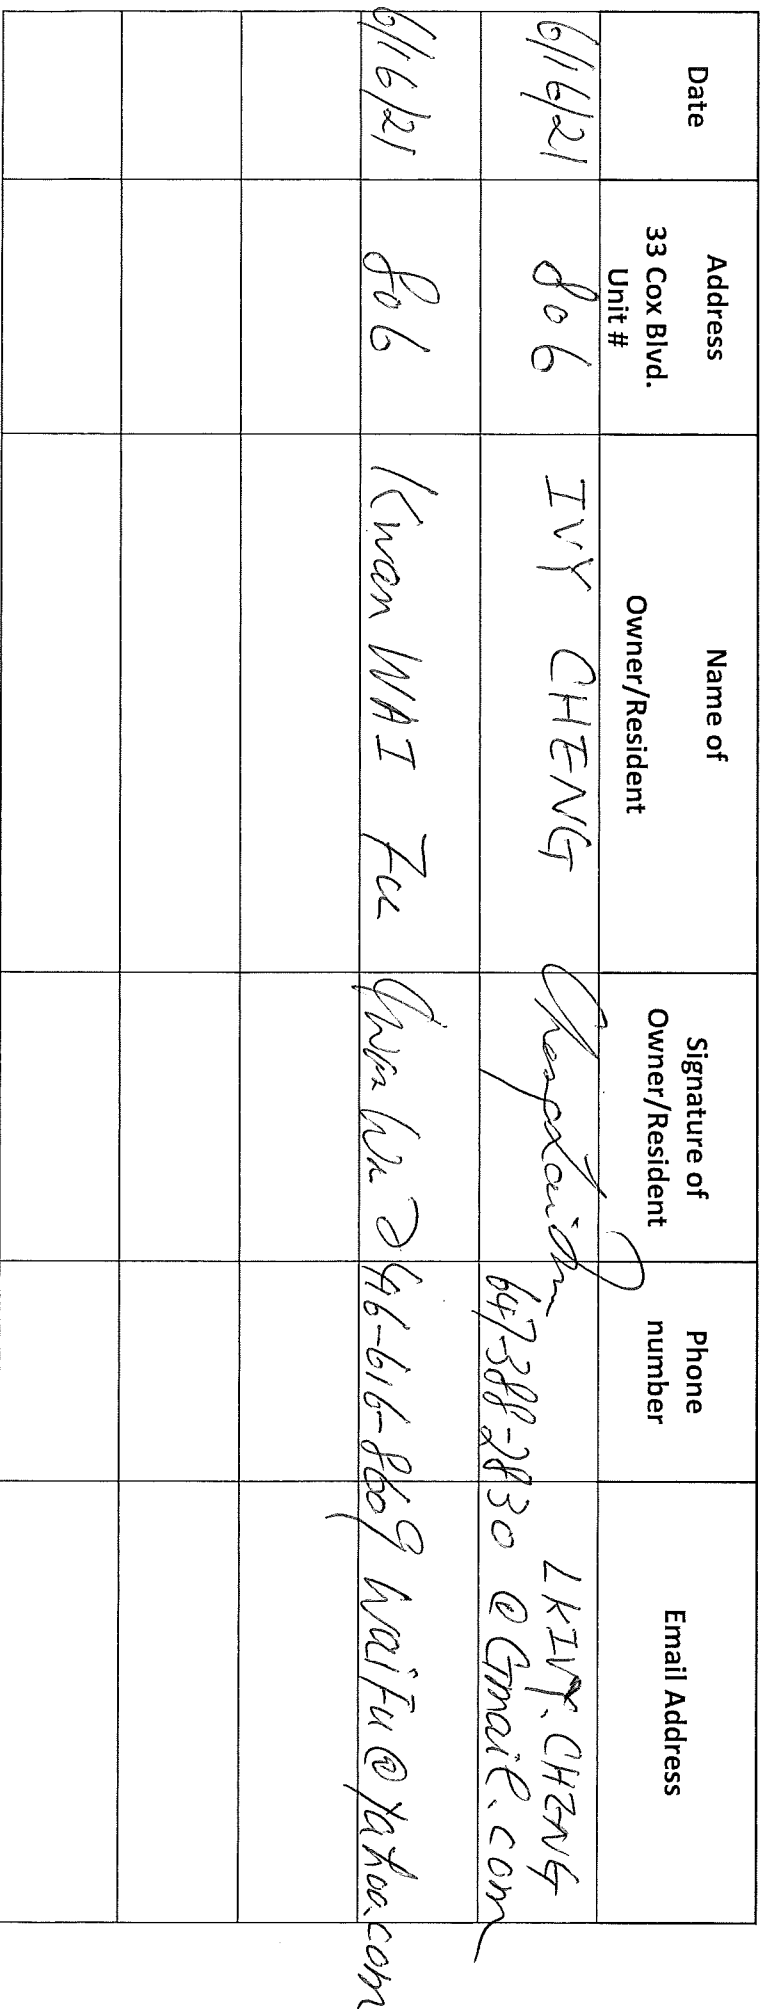 Date
Address
33 Cox Blvd.
Unit #
Name of
Owner/Resident
Signature of
Owner/Resident
Phone
number
Email Address
6/16/21
806
IVY CHENG
647-388-2830
LKIVY.CHENG
@Gmail.com
6/16/21
806
Kwan WAI Fu
416-616-8609
WaiFu@yahoo.com